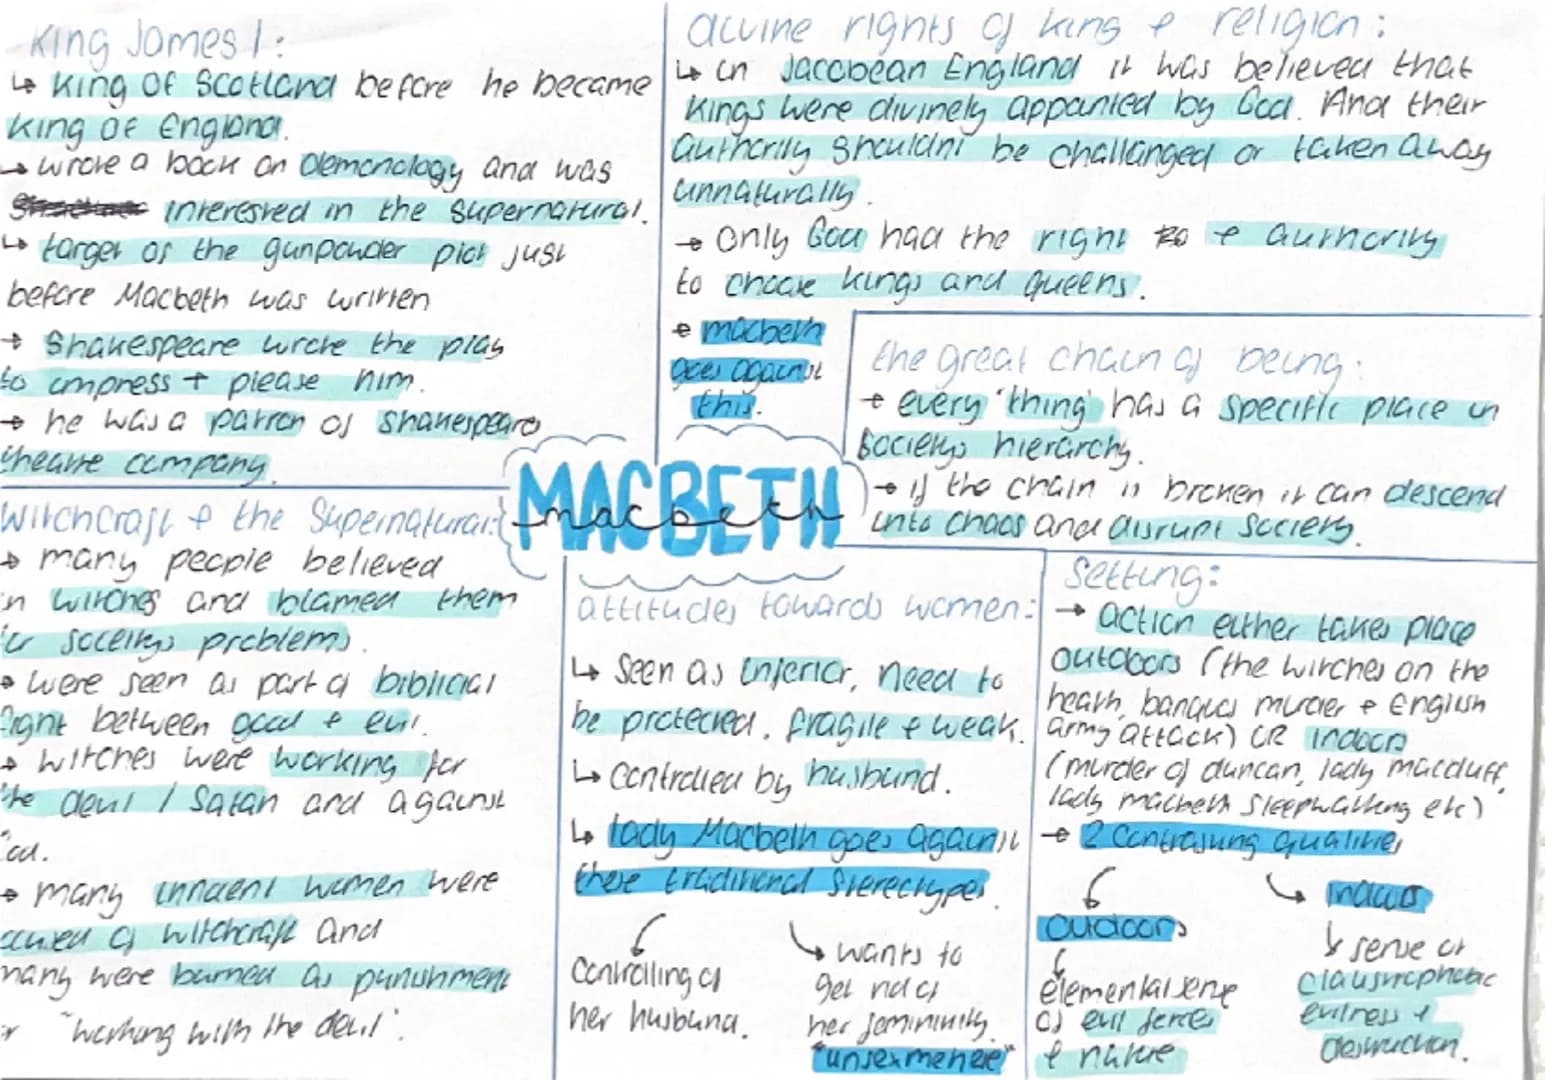 King James 1:
↳ King of Scotland before he became
King of England.
→ wrote a book on demonology and was
interested in the supernatural.
↳ target of the gunpowder plot just
before Macbeth was written
→ Shakespeare wrote the play
to impress + please him.
→ he was a patron of Shakespeare
theatre company.
divine rights of king & religion:
↳ in Jacobean England it was believed that
Kings were divinely appointed by God. And their
authority shouldnt be challanged or taken away
unnaturally.
→ Only God had the right & authority
to choose kings and queens.
→ macbeth
goes against
this.
the great chain of being:
→ every 'thing' has a specific place in
societys hierarchy.
→ if the chain is broken it can descend
into chaos and disrupt society.
MACBETH
macbeth
Witchcraft & the Supernatural:
→ many people believed
in witches and blamed them
for societys problems.
→ were seen as part of biblical
fight between good & evil.
→ witches were working for
the devil / Satan and against
God.
→ many innocent women were
accused of witchcraft and
many were burned as punishment
for "working with the devil".
attitudes towards women:
↳ Seen as inferior, need to
be protected, fragile & weak.
↳ controlled by husband.
↳ lady Macbeth goes against
these traditional stereotypes.
controlling of
her husband.
→ wants to
get rid of
her femininity.
"unsex me here"
Setting:
→ action either takes place
outdoors (the witches on the
heath, banquos murder & English
army attack) OR indoors
(murder of duncan, lady macduff,
lady macbeth sleepwalking etc)
→ 2 contrasting qualities
outdoors
elemental sense
of evil forces
& nature
indoors
↳ sense of
claustrophobic
evilness &
destruction.